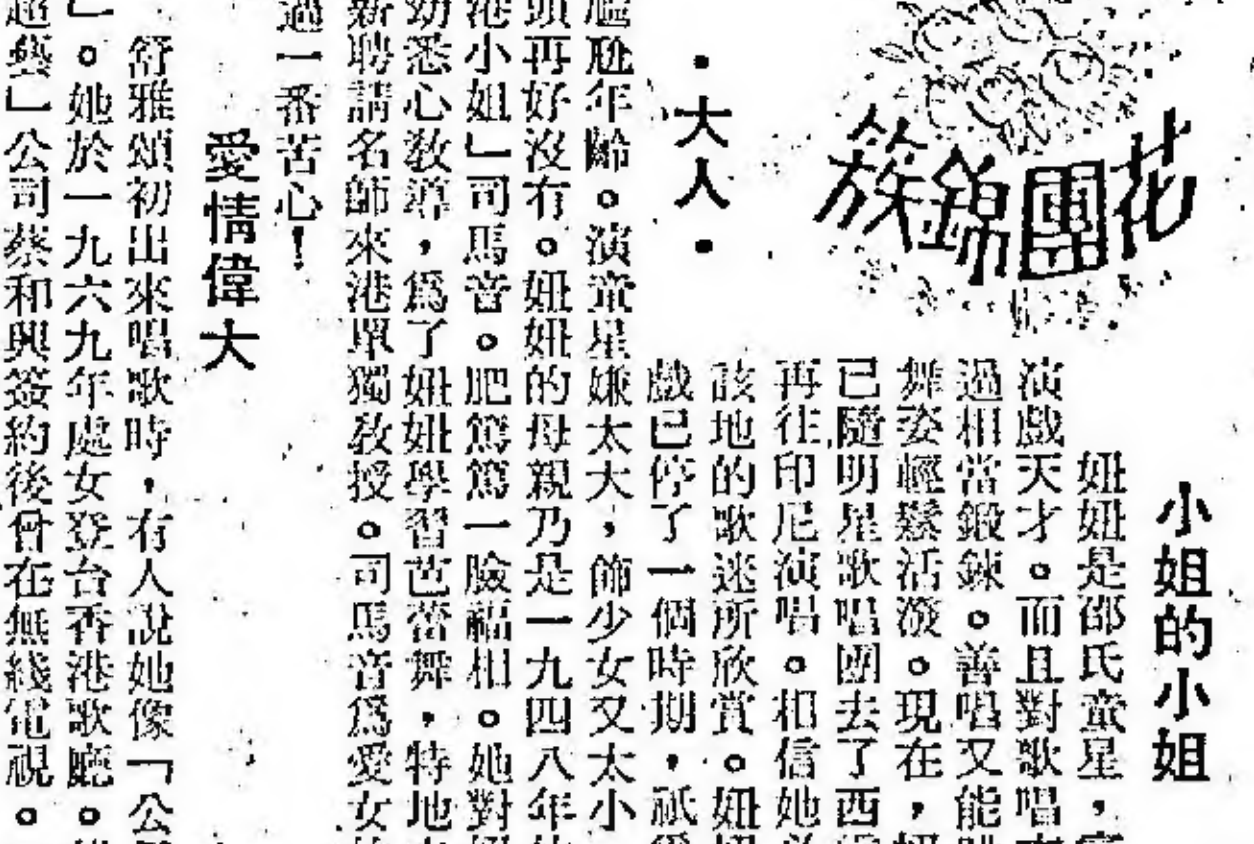 花團錦簇
·大人·
小姐的小姐
妞妞是邵氏童星，
演戲天才。而且對歌唱
過相當鍛鍊。善唱又能
舞姿輕鬆活潑。現在，
已隨明星歌唱團去了西
再往印尼演唱。相信她
該地的歌迷所欣賞。妞
戲已停了一個時期，祇
尷尬年齡。演童星嫌太大，飾少女又太小
頭再好沒有。妞妞的母親乃是一九四八年
港小姐」司馬音。肥篤篤一臉福相。她對
幼悉心教導，爲了妞妞學習芭蕾舞，特地
新聘請名師來港單獨教授。司馬音爲愛女
過一番苦心！
愛情偉大
舒雅頌初出來唱歌時，有人說她像「公
」。她於一九六九年處女登台香港歌廳。
超藝」公司蔡和興簽約後曾在無綫電視。